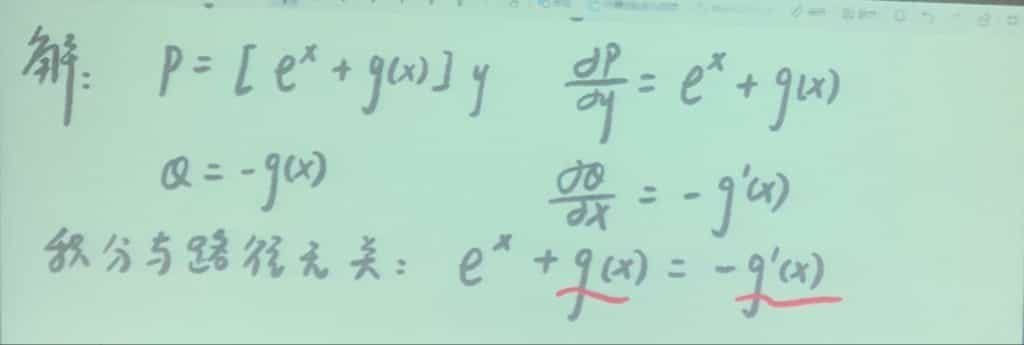 解: P = [ eˣ + g(x) ] y ∂P/∂y = eˣ + g(x)
Q = -g(x) ∂Q/∂x = -g'(x)
积分与路径无关: eˣ + g(x) = -g'(x)